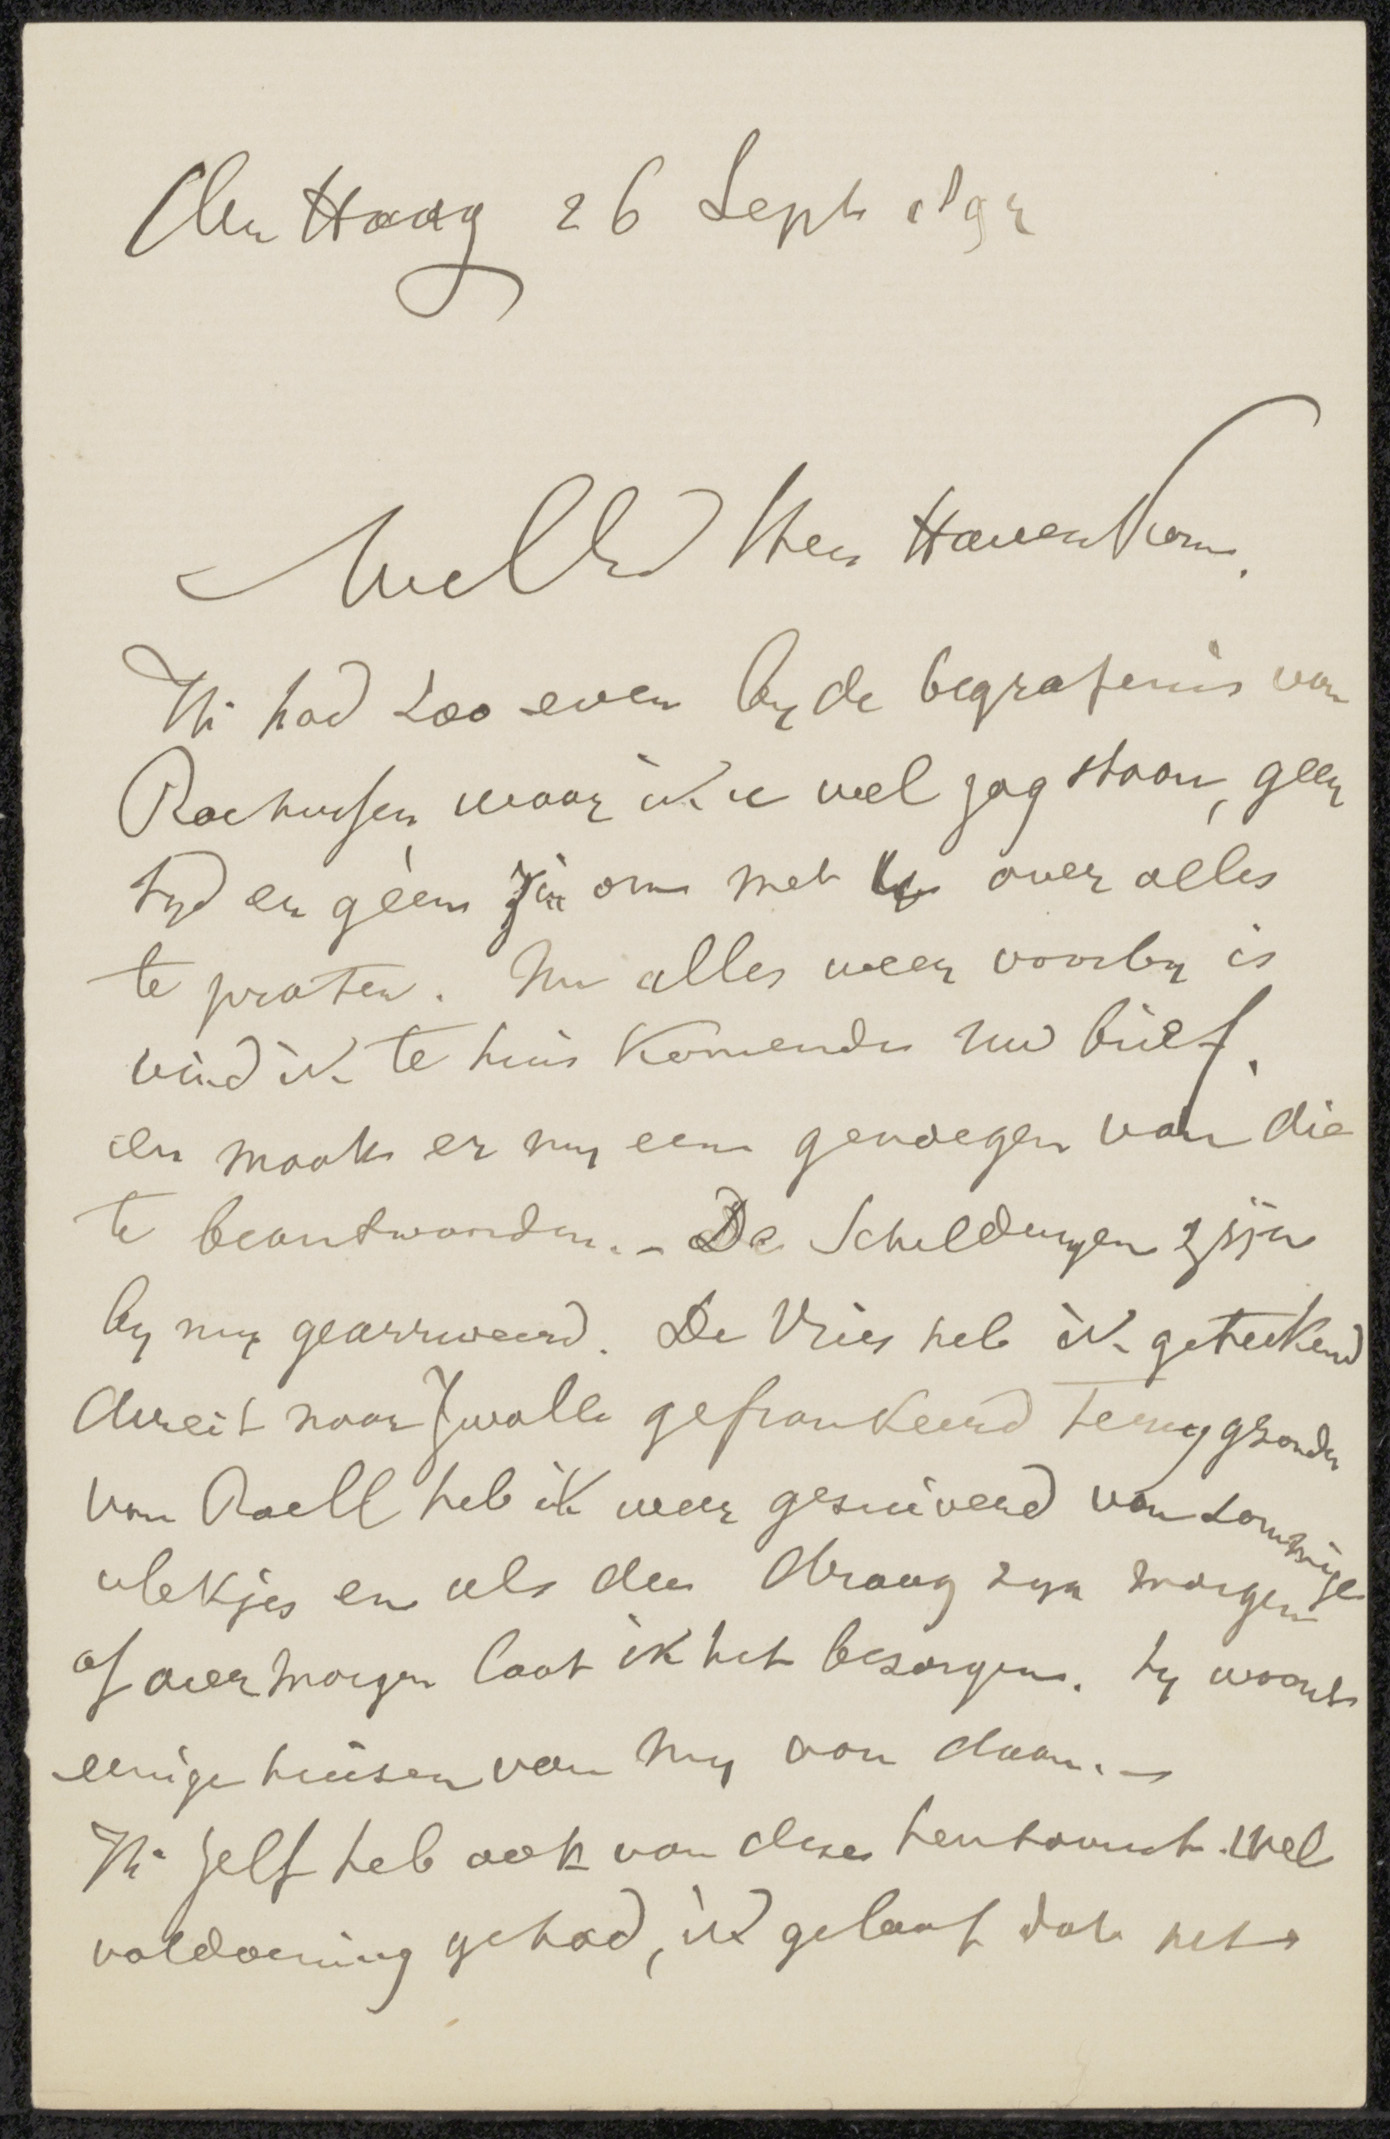 Den Haag 26 Sept 1894
WelEd Heer Haverkorn.
Ik had zoo even by de begrafenis van
Rochussen, waar ik u wel zag staan, geen
tyd en géén zin om met U over alles
te praten. Nu alles weer voorby is
vind ik te huis komende uw brief.
en maak er my een genoegen van die
te beantwoorden. - De Schilderyen zijn
by my gearriveerd. De Vries heb ik getekend
direct naar Zwolle gefrankeerd teruggezonden
van Roëll heb ik weer gezuiverd van sommige
vlekjes en als die droog zyn morgen
of overmorgen laat ik het bezorgen. hy woont
eenige huizen van my van daan. -
Ik zelf heb ook van deze tentoonst. wel
voldoening gehad, ik geloof dat het